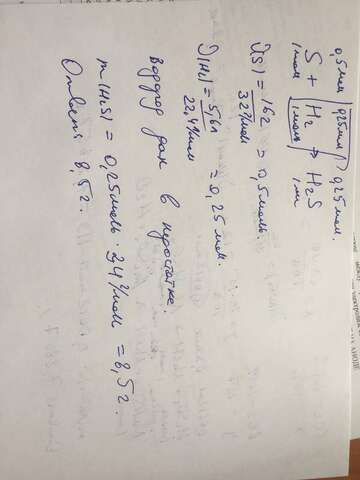 0,5 моль 0,25 моль 0,25 моль.
S + H2 → H2S
1моль 1моль 1м
ν(S) = 16г / 32г/моль = 0,5моль.
ν(H2) = 5,6л / 22,4л/моль = 0,25 моль.
Водород дан в недостатке.
m(H2S) = 0,25моль · 34г/моль = 8,5г.
Ответ: 8,5г.
АНОДЕ